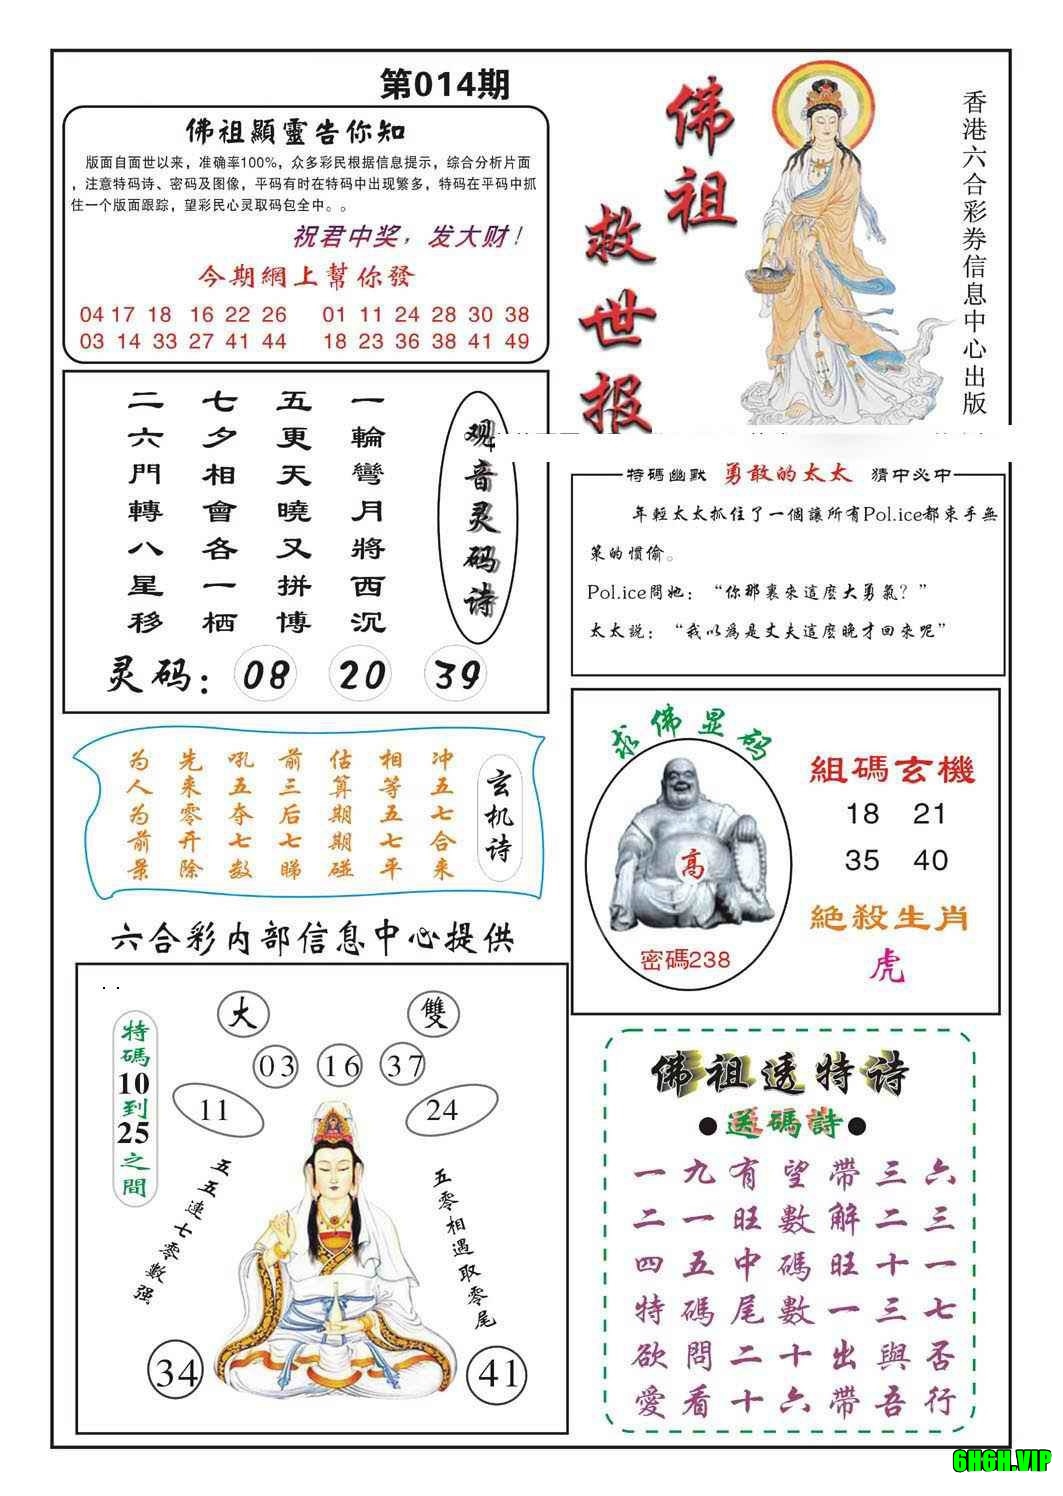 第014期
佛祖顯靈告你知
版面自面世以来，准确率100%，众多彩民根据信息提示，综合分析片面
，注意特码诗、密码及图像，平码有时在特码中出现繁多，特码在平码中抓
住一个版面跟踪，望彩民心灵取码包全中。。
祝君中奖，发大财！
今期網上幫你發
04 17 18 16 22 26 01 11 24 28 30 38
03 14 33 27 41 44 18 23 36 38 41 49
佛祖救世报
香港六合彩券信息中心出版
观音灵码诗
一輪彎月將西沉
五更天曉又拼博
七夕相會各一栖
二六門轉八星移
灵码：08 20 39
特碼幽默 勇敢的太太 猜中必中
年輕太太抓住了一個讓所有Pol.ice都束手無
策的惯偷。
Pol.ice問她：“你那裏來這麽大勇氣？”
太太說：“我以為是丈夫這麽晚才回來呢”
玄机诗
冲五七合来
相等五七平
估算期期碰
前三后七睇
吼五夺七数
先来零开除
为人为前景
求佛显码
高
密碼238
組碼玄機
18 21
35 40
絕殺生肖
虎
六合彩内部信息中心提供
特碼10到25之間
大 雙
03 16 37
11 24
五五連七零數强
五零相遇取零尾
34 41
佛祖透特诗
●送碼詩●
一九有望帶三六
二一旺數解二三
四五中碼旺十一
特碼尾數一三七
欲問二十出與否
愛看十六帶吾行
6H6H.VIP